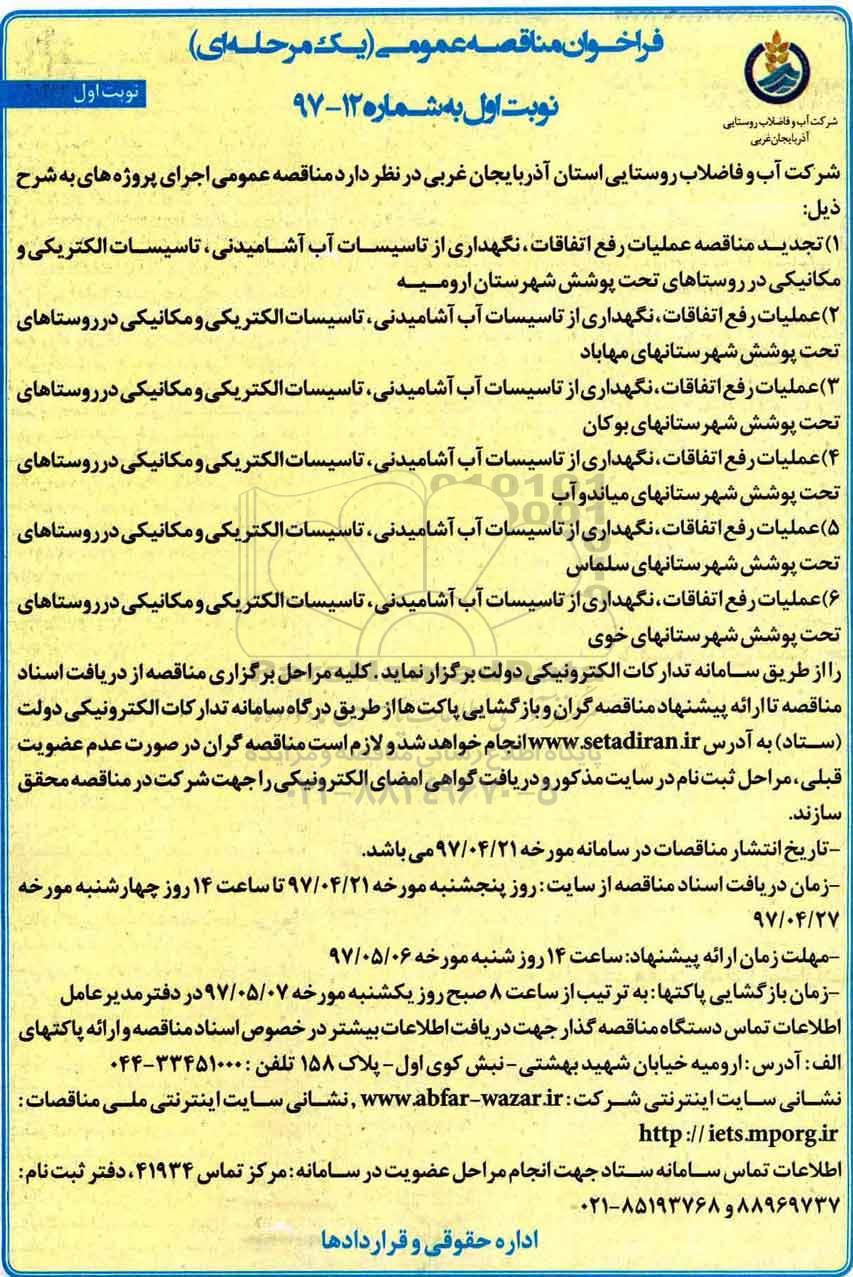 فراخوان مناقصه عمومی (یک مرحله‌ای)
نوبت اول به شماره ۱۲-۹۷
نوبت اول
شرکت آب و فاضلاب روستایی
آذربایجان غربی
شرکت آب و فاضلاب روستایی استان آذربایجان غربی در نظر دارد مناقصه عمومی اجرای پروژه های به شرح
ذیل:
۱) تجدید مناقصه عملیات رفع اتفاقات، نگهداری از تاسیسات آب آشامیدنی، تاسیسات الکتریکی و
مکانیکی در روستاهای تحت پوشش شهرستان ارومیه
۲) عملیات رفع اتفاقات، نگهداری از تاسیسات آب آشامیدنی، تاسیسات الکتریکی و مکانیکی در روستاهای
تحت پوشش شهرستانهای مهاباد
۳) عملیات رفع اتفاقات، نگهداری از تاسیسات آب آشامیدنی، تاسیسات الکتریکی و مکانیکی در روستاهای
تحت پوشش شهرستانهای بوکان
۴) عملیات رفع اتفاقات، نگهداری از تاسیسات آب آشامیدنی، تاسیسات الکتریکی و مکانیکی در روستاهای
تحت پوشش شهرستانهای میاندوآب
۵) عملیات رفع اتفاقات، نگهداری از تاسیسات آب آشامیدنی، تاسیسات الکتریکی و مکانیکی در روستاهای
تحت پوشش شهرستانهای سلماس
۶) عملیات رفع اتفاقات، نگهداری از تاسیسات آب آشامیدنی، تاسیسات الکتریکی و مکانیکی در روستاهای
تحت پوشش شهرستانهای خوی
را از طریق سامانه تدارکات الکترونیکی دولت برگزار نماید. کلیه مراحل برگزاری مناقصه از دریافت اسناد
مناقصه تا ارائه پیشنهاد مناقصه گران و بازگشایی پاکت ها از طریق درگاه سامانه تدارکات الکترونیکی دولت
(ستاد) به آدرس www.setadiran.ir انجام خواهد شد و لازم است مناقصه گران در صورت عدم عضویت
قبلی، مراحل ثبت نام در سایت مذکور و دریافت گواهی امضای الکترونیکی را جهت شرکت در مناقصه محقق
سازند.
-تاریخ انتشار مناقصات در سامانه مورخه ۹۷/۰۴/۲۱ می باشد.
-زمان دریافت اسناد مناقصه از سایت: روز پنجشنبه مورخه ۹۷/۰۴/۲۱ تا ساعت ۱۴ روز چهارشنبه مورخه
۹۷/۰۴/۲۷
-مهلت زمان ارائه پیشنهاد: ساعت ۱۴ روز شنبه مورخه ۹۷/۰۵/۰۶
-زمان بازگشایی پاکتها: به ترتیب از ساعت ۸ صبح روز یکشنبه مورخه ۹۷/۰۵/۰۷ در دفتر مدیرعامل
اطلاعات تماس دستگاه مناقصه گذار جهت دریافت اطلاعات بیشتر در خصوص اسناد مناقصه و ارائه پاکتهای
الف: آدرس: ارومیه خیابان شهید بهشتی- نبش کوی اول- پلاک ۱۵۸ تلفن: ۳۳۴۵۱۰۰۰-۰۴۴
نشانی سایت اینترنتی شرکت: www.abfar-wazar.ir , نشانی سایت اینترنتی ملی مناقصات:
http://iets.mporg.ir
اطلاعات تماس سامانه ستاد جهت انجام مراحل عضویت در سامانه: مرکز تماس ۴۱۹۳۴، دفتر ثبت نام:
۸۸۹۶۹۷۳۷ و ۸۵۱۹۳۷۶۸-۰۲۱
اداره حقوقی و قراردادها